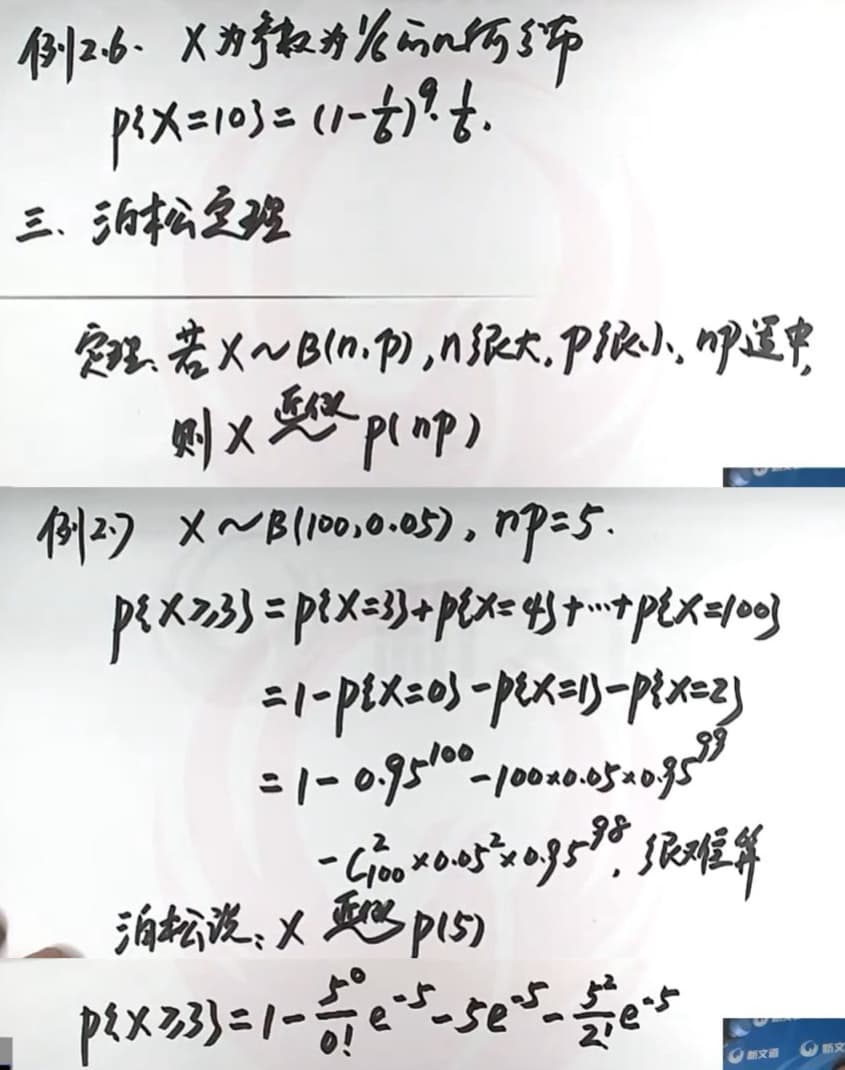 例2.6. X为参数为1/6的几何分布
P{X=10}=(1-1/6)^9·1/6.
三、泊松定理
定理、若X~B(n,p),n很大,p很小,np适中,
则X 近似~ P(np)
例2.7 X~B(100,0.05), np=5.
P{X≥3}=P{X=3}+P{X=4}+…+P{X=100}
=1-P{X=0}-P{X=1}-P{X=2}
=1-0.95^100-100×0.05×0.95^99
-C_100^2×0.05^2×0.95^98, 很难算
泊松说: X 近似~ P(5)
P{X≥3}=1-5^0/0! e^-5-5e^-5-5^2/2! e^-5
新文道 新文